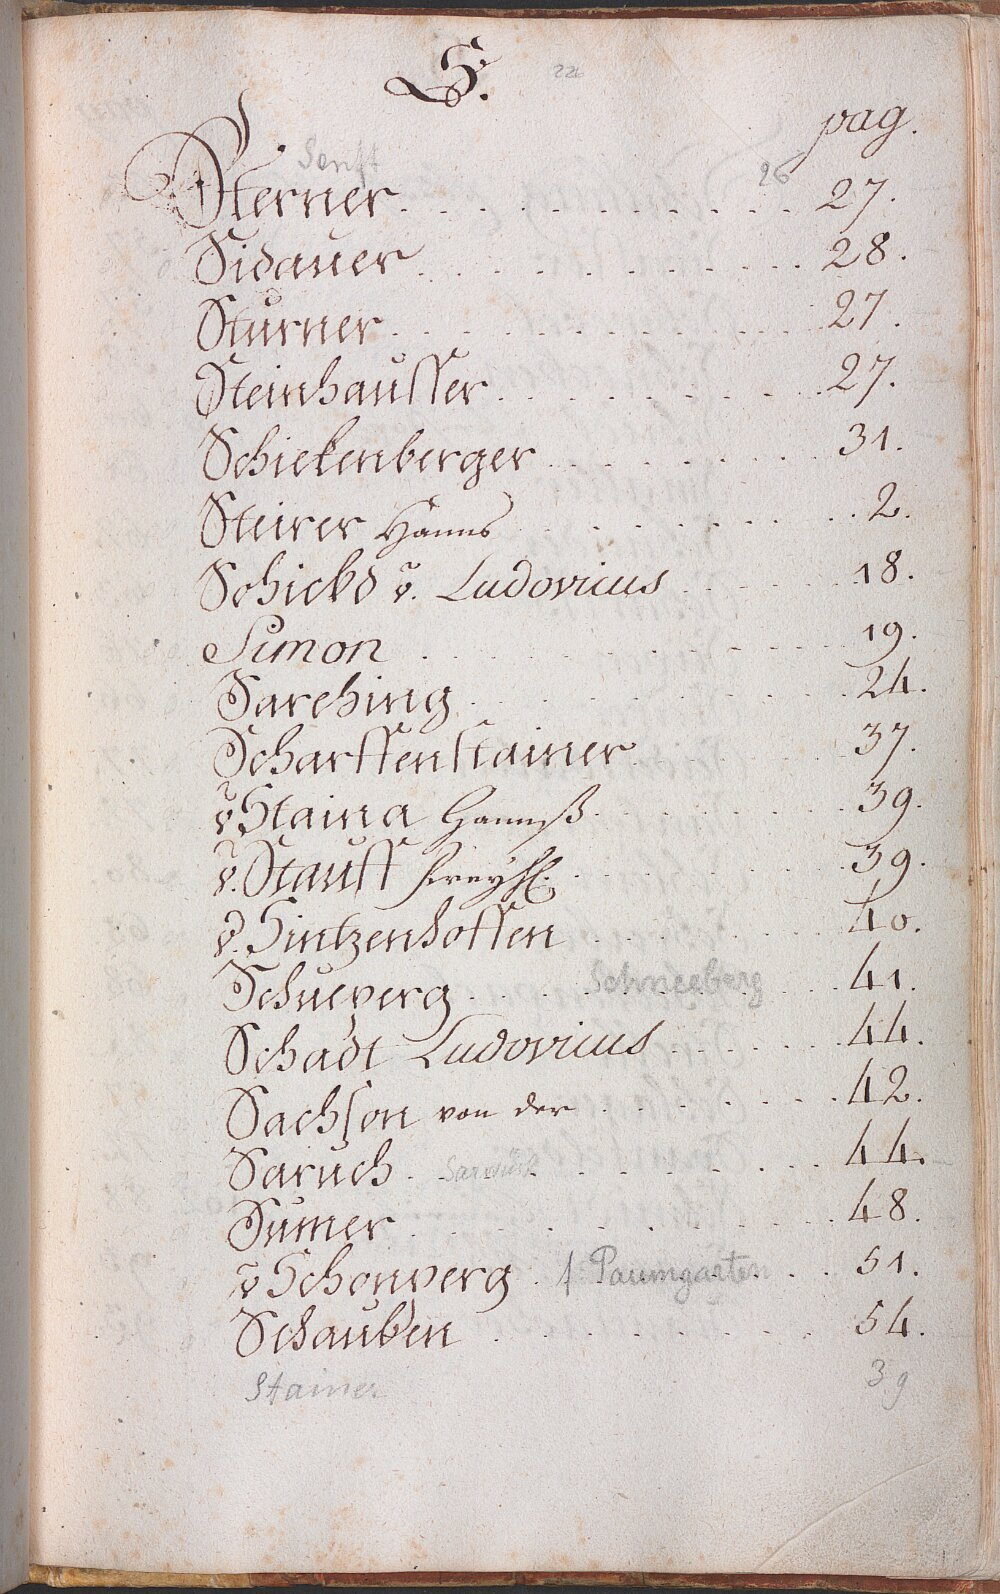 S. 226
pag.
Senft 26
Sterner. 27.
Sidauer 28.
Sturner 27.
Steinhausser 27.
Schiekenberger 31.
Steirer Hanns 2.
Schickd v. Ludovicus 18.
Simon 19.
Sarching 24.
Scharffenstainer 37.
v Staina Hannß 39.
v. Stauff 39.
v. Sintzenhoffen 40.
Schneperg Schneeberg 41.
Schadt Ludovicus 44.
Sachson von der 42.
Saruch 44.
Sumer 48.
v Schonperg f Paumgarten 51.
Schauben 54.
Stainer 39